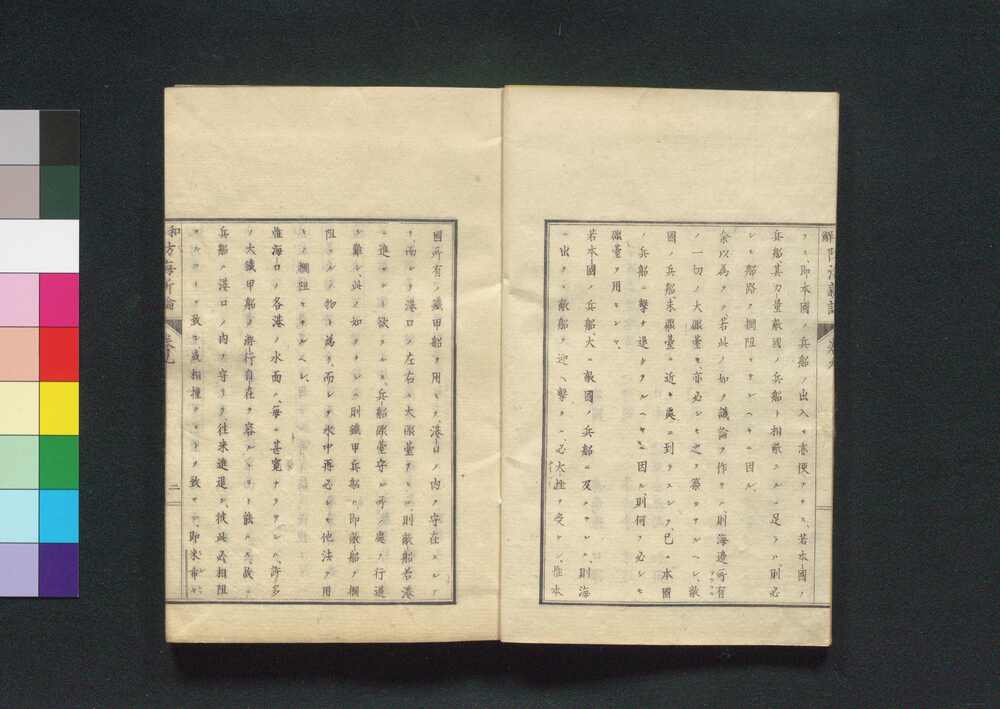 フニ、即本國ノ兵船ノ出入モ亦便アラス、若本國ノ
兵船、其力量敵國ノ兵船ト相敵スルニ足ラハ、則必
シモ船路ヲ攔阻セサルヘキニ因ル、
余以為ラク若此ノ如ク議論ヲ作サハ、則海邊所有
ノ一切ノ大礮臺モ、亦必シモ之ヲ築カサルヘシ、敵
國ノ兵船、未礮臺ニ近キ處ニ到ラスシテ、已ニ本國
ノ兵船ニ擊チ退ケラルヘキニ因ル、則何ソ必シモ
礮臺ヲ用センヤ、
若本國ノ兵船、大ニ敵國ノ兵船ニ及ハサレハ、則海
ニ出テ敵船ヲ迎ヘ擊タハ、必大挫ヲ受ケン、惟本
國所有ノ鐵甲船ヲ用ヒテ、港口ノ内ヲ守在スルノ
ミ、而シテ港口ノ左右ニ大礮臺アレハ、則敵船若港
ニ進マント欲スルモ、兵船礮臺守ル所ノ處ハ行過
シ難シ、此ノ如クナレハ則鐵甲兵船ハ即敵船ヲ攔
阻スルノ物ト為リ、而シテ水中再必シモ他法ヲ用
ヒテ攔阻セサルヘシ、
惟海口ノ各港ノ水面ハ、每ニ甚寬ナラサレハ、許多
ノ大鐵甲船ノ游行自在ヲ容ルコト能ハス、故ニ
兵船ノ港口ノ内ヲ守ルトキ、往来進退シ、彼此必相阻
スルコトヲ致シ、或相撞クコトヲ致サン、即米帝ハ
和方海新論
卷九
二